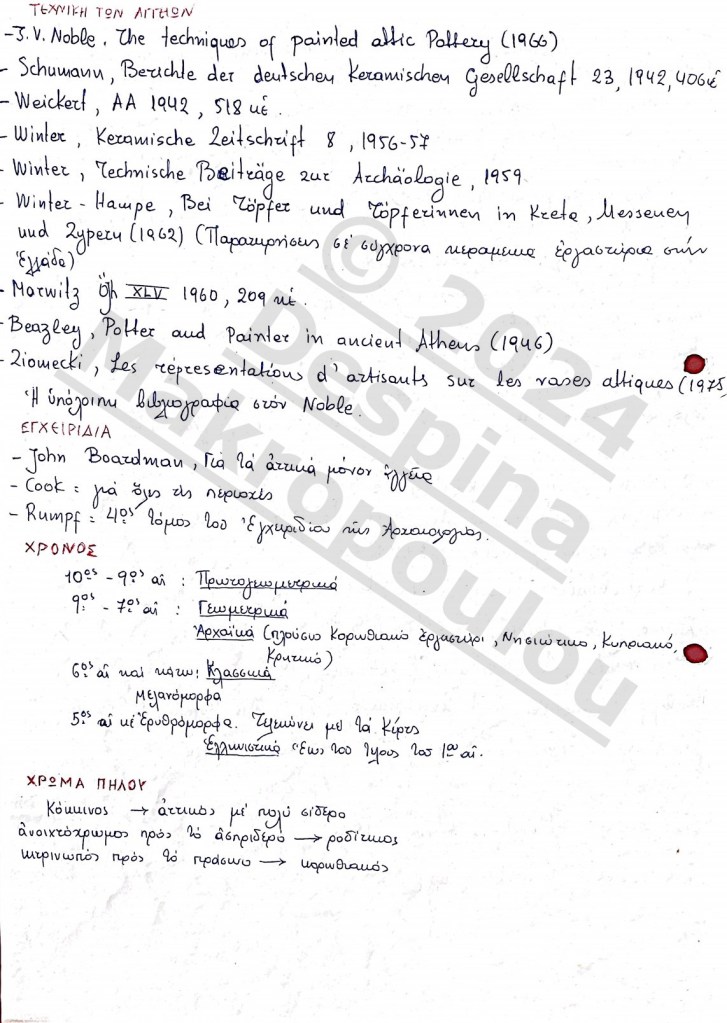 ΤΕΧΝΙΚΗ ΤΩΝ ΑΓΓΕΙΩΝ
- J. V. Noble. The techniques of painted attic Pottery (1966)
- Schumann, Berichte der deutschen Keramischen Gesellschaft 23, 1942, 406 κἑ
- Weickert, AA 1942, 518 κἑ.
- Winter, Keramische Zeitschrift 8, 1956-57
- Winter, Technische Beiträge zur Archäologie, 1959
- Winter - Hampe, Bei Töpfer und Töpferinnen in Kreta, Messeney
und Zypern (1962) (Παρατηρήσεις σέ σύγχρονα κεραμεικα ἐργαστήρια στήν
Ἑλλάδα)
- Marwitz Öjh XLV 1960, 209 κἑ.
- Beazley, Potter and Painter in ancient Athens (1946)
- Ziomecki, Les représentations d'artisants sur les vases attiques (1975,
Ἡ ὑπόλοιπη βιβλιογραφία στόν Noble.
ΕΓΧΕΙΡΙΔΙΑ
- John Boardman, Γιά τά ἀττικά μόνον ἀγγεῖα
- Cook: γιά ὅλες τίς περιοχές
- Rumpf: 4ος τόμος τοῦ Ἐγχειριδίου τῆς Ἀρχαιολογίας.
ΧΡΟΝΟΣ
10ος - 9ος αἰ : Πρωτογεωμετρικά
9ος - 7ος αἰ : Γεωμετρικά
Ἀρχαϊκά (πλούσιο Κορινθιακό ἐργαστήρι, Νησιώτικο, Κυπριακό,
Κρητικό)
6ος αἰ καί κάτω: Κλασσικά
Μελανόμορφα
5ος αἰ κἑ Ἐρυθρόμορφα. Τελειώνει με τά Κέρτς
Ἑλληνιστικά Ἕως τοῦ τέλος τοῦ 1ου αἰ.
ΧΡΩΜΑ ΠΗΛΟΥ
Κόκκινος → ἀττικός μέ πολύ σίδερο
ἀνοιχτόχρωμος πρός τό ἀσπριδερό → ροδίτικος
κιτρινωπός πρός τό πράσινο → κορινθιακός
© 2024
Despina
Makropoulou